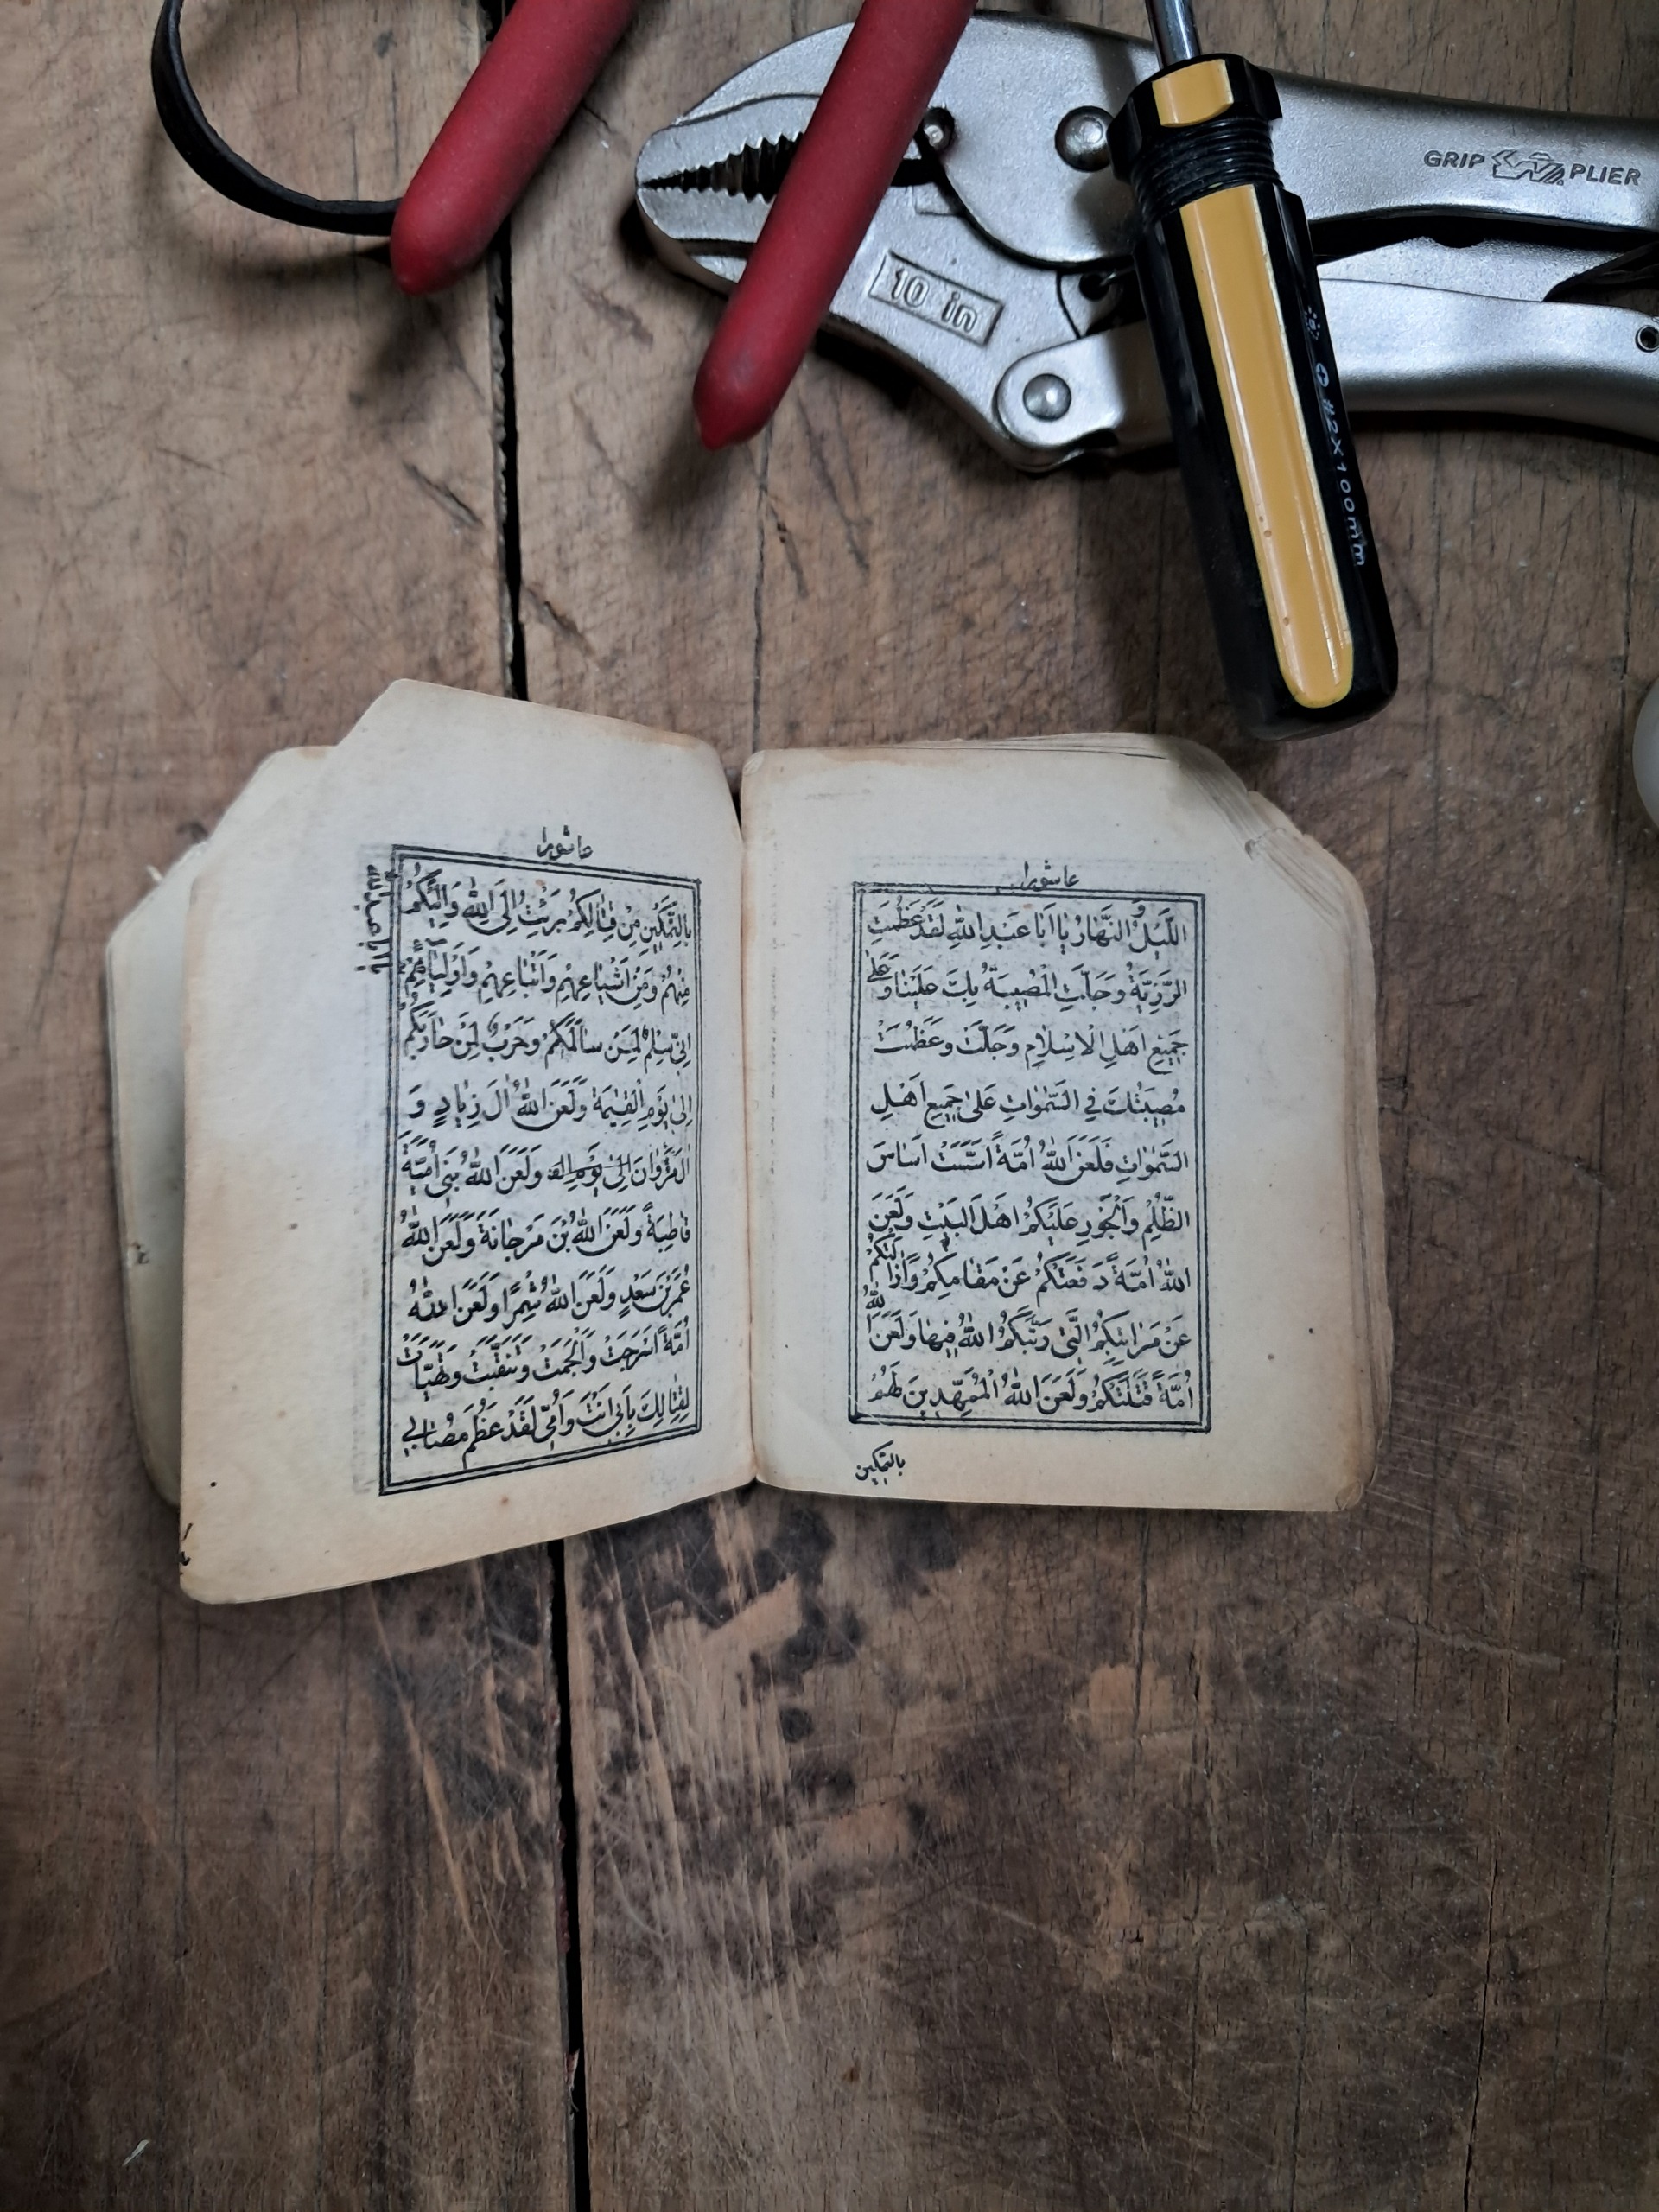 GRIP PLIER
10 in
#2X100mm
عاشورا
اللَّيْلُ وَالنَّهَارُ يَا اَبَا عَبْدِ اللهِ لَقَدْ عَظُمَتِ
الرَّزِيَّةُ وَجَلَّتِ الْمُصِيبَةُ بِكَ عَلَيْنَا وَعَلٰى
جَمِيعِ اَهْلِ الْاِسْلَامِ وَجَلَّتْ وَعَظُمَتْ
مُصِيبَتُكَ فِي السَّمٰوَاتِ عَلٰى جَمِيعِ اَهْلِ
السَّمٰوَاتِ فَلَعَنَ اللهُ اُمَّةً اَسَّسَتْ اَسَاسَ
الظُّلْمِ وَالْجَوْرِ عَلَيْكُمْ اَهْلَ الْبَيْتِ وَلَعَنَ
اللهُ اُمَّةً دَفَعَتْكُمْ عَنْ مَقَامِكُمْ وَاَزَالَتْكُمْ
عَنْ مَرَاتِبِكُمُ الَّتِي رَتَّبَكُمُ اللهُ فِيهَا وَلَعَنَ اللهُ
اُمَّةً قَتَلَتْكُمْ وَلَعَنَ اللهُ الْمُمَهِّدِينَ لَهُمْ
بالتمكين
عاشورا
بِالتَّمْكِينِ مِنْ قِتَالِكُمْ بَرِئْتُ اِلَى اللهِ وَاِلَيْكُمْ
مِنْهُمْ وَمِنْ اَشْيَاعِهِمْ وَاَتْبَاعِهِمْ وَاَوْلِيَائِهِمْ
اِنِّي سِلْمٌ لِمَنْ سَالَمَكُمْ وَحَرْبٌ لِمَنْ حَارَبَكُمْ
اِلٰى يَوْمِ الْقِيٰمَةِ وَلَعَنَ اللهُ اٰلَ زِيَادٍ وَ
اٰلَ مَرْوَانَ اِلٰى يَوْمِ الق وَلَعَنَ اللهُ بَنِي اُمَيَّةَ
قَاطِبَةً وَلَعَنَ اللهُ بْنَ مَرْجَانَةَ وَلَعَنَ اللهُ
عُمَرَ بْنَ سَعْدٍ وَلَعَنَ اللهُ شِمْرًا وَلَعَنَ اللهُ
اُمَّةً اَسْرَجَتْ وَاَلْجَمَتْ وَتَنَقَّبَتْ وَتَهَيَّأَتْ
لِقِتَالِكَ بِاَبِي اَنْتَ وَاُمِّي لَقَدْ عَظُمَ مُصَابِي